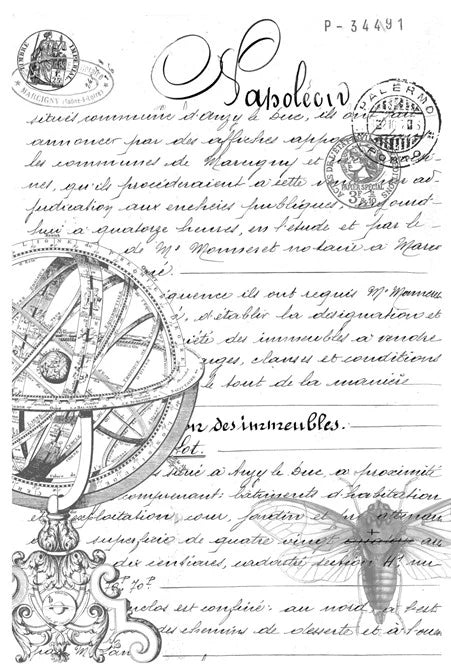 P-34491
TIMBRE IMPERIAL
MARCIGNY
Napoléon
PALERMO
PORTO
situés commune d'Anzy le Duc, ils ont fait
annoncer par des affiches appo
les communes de Marcigny et
nes, qu'ils procéderaient à cette
PAPIER SPECIAL
judication aux enchères publiques,
hui à quatorze heures, en l'étude et par le
de Me Monseret notaire à Marci
quence ils ont requis Me Monseret
s, d'établir la désignation et
iété des immeubles à vendre
arges, clauses et conditions
le tout de la manière
on des immeubles.
lot.
situé à Anzy le Duc, à proximité
comprenant: bâtiments d'habitation
et exploitation, cour, jardin et
superficie de quatre vingt au
dix centiares, cadastré section
clos est confiné: au nord, à l'est
des chemins de desserte et à l'ou
par M.